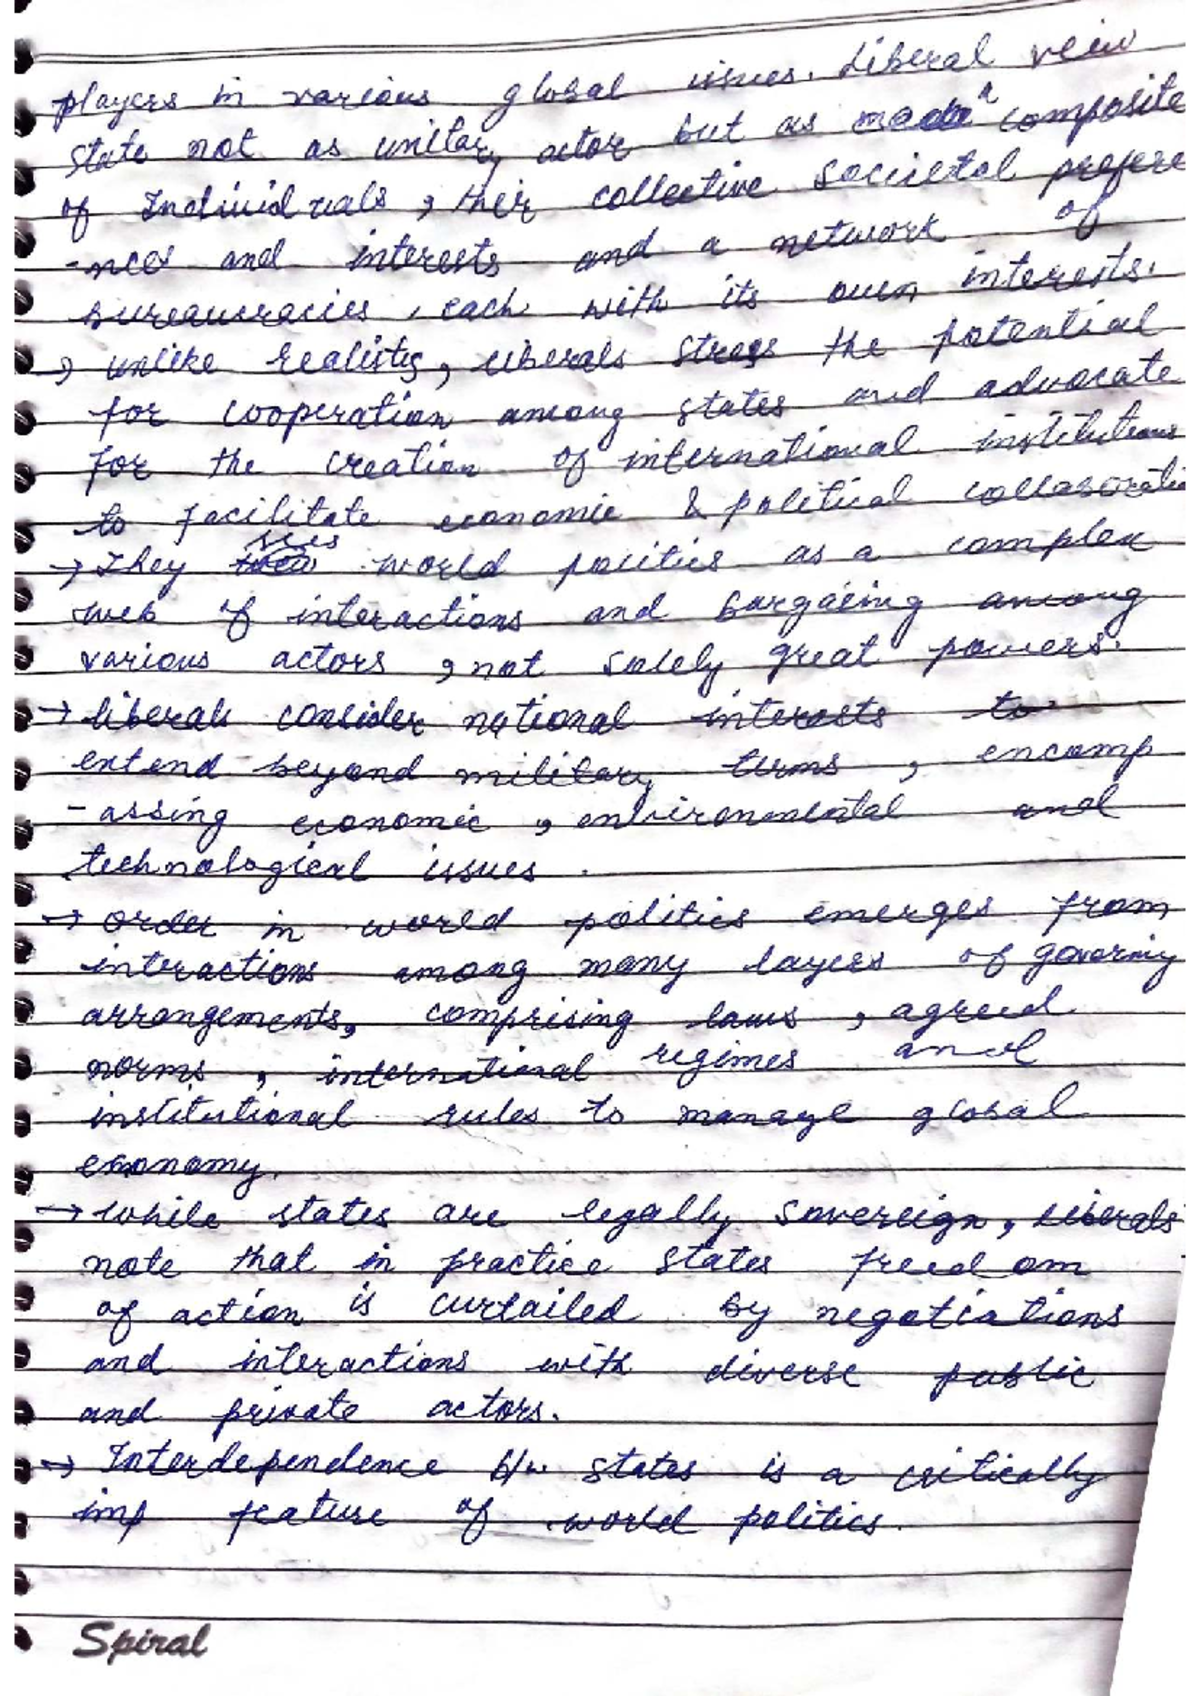 players in various global issues. Liberal veiw
state not as unitary actor but as a composite
of Individuals, their collective societal prefere
-nces and interests and a network of
bureaucracies, each with its own interests.
→ unlike realists, liberals stress the potential
for cooperation among states and advocate
for the creation of international institutions
to facilitate economic & political collaboratio
→ They sees world politics as a complex
web of interactions and bargaining among
various actors, not solely great powers.
→ liberals consider national interests to
extend beyond military terms, encomp
-assing economic, environmental and
technological issues.
→ order in world politics emerges from
interactions among many layers of governing
arrangements, comprising laws, agreed
norms, international regimes and
institutional rules to manage global
economy.
→ while states are legally sovereign, liberals
note that in practice states freedom
of action is curtailed by negotiations
and interactions with diverse public
and private actors.
→ Interdependence b/w states is a critically
imp feature of world politics.
Spiral